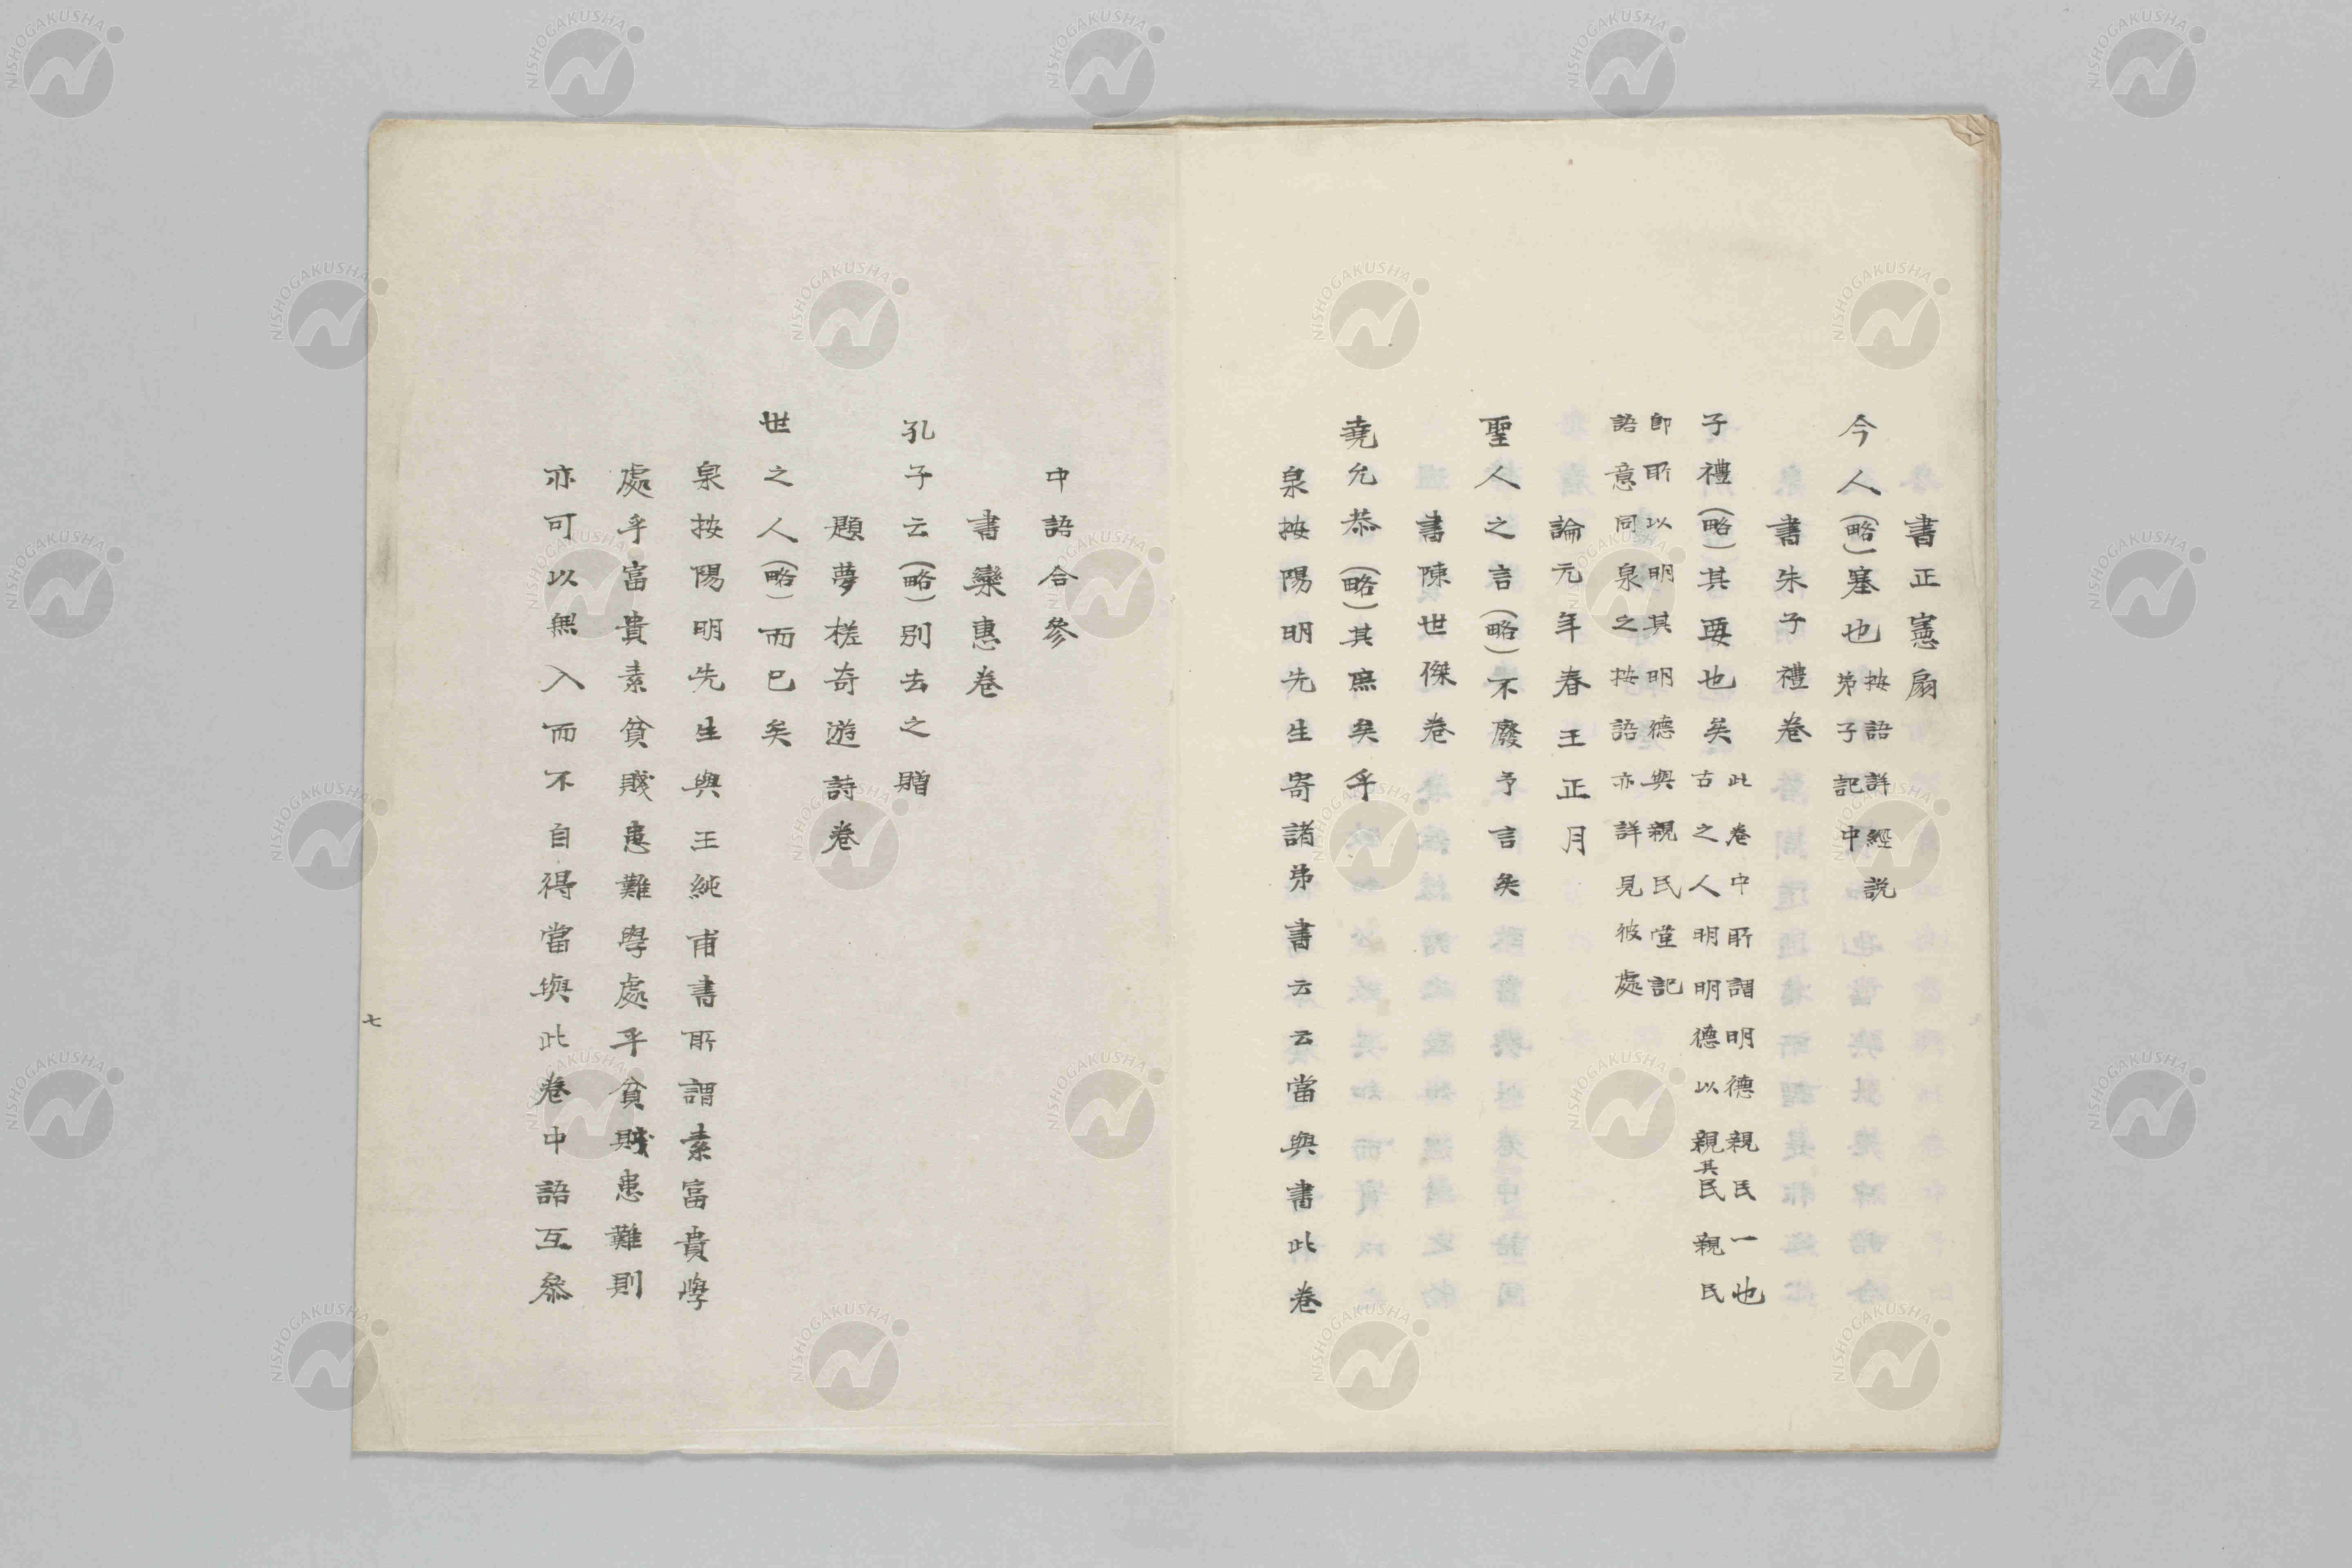 書正憲扇
今人(略)塞也按語詳經説
弟子記中
書朱子禮卷
子禮(略)其要也矣此卷中所謂明德親民一也
古之人明明德以親其民親民
即所以明其明德與親民堂記
語意同泉之按語亦詳見彼處
論元年春王正月
聖人之言(略)不廢予言矣
書陳世傑卷
堯允恭(略)其庶矣乎
泉按陽明先生寄諸弟書云云當與書此卷
中語合參
書欒惠卷
孔子云(略)別去之贈
題夢槎奇遊詩卷
世之人(略)而已矣
泉按陽明先生與王純甫書所謂素富貴學
處乎富貴素貧賤患難學處乎貧賤患難則
亦可以無入而不自得當與此卷中語互參
七
NISHOGAKUSHA